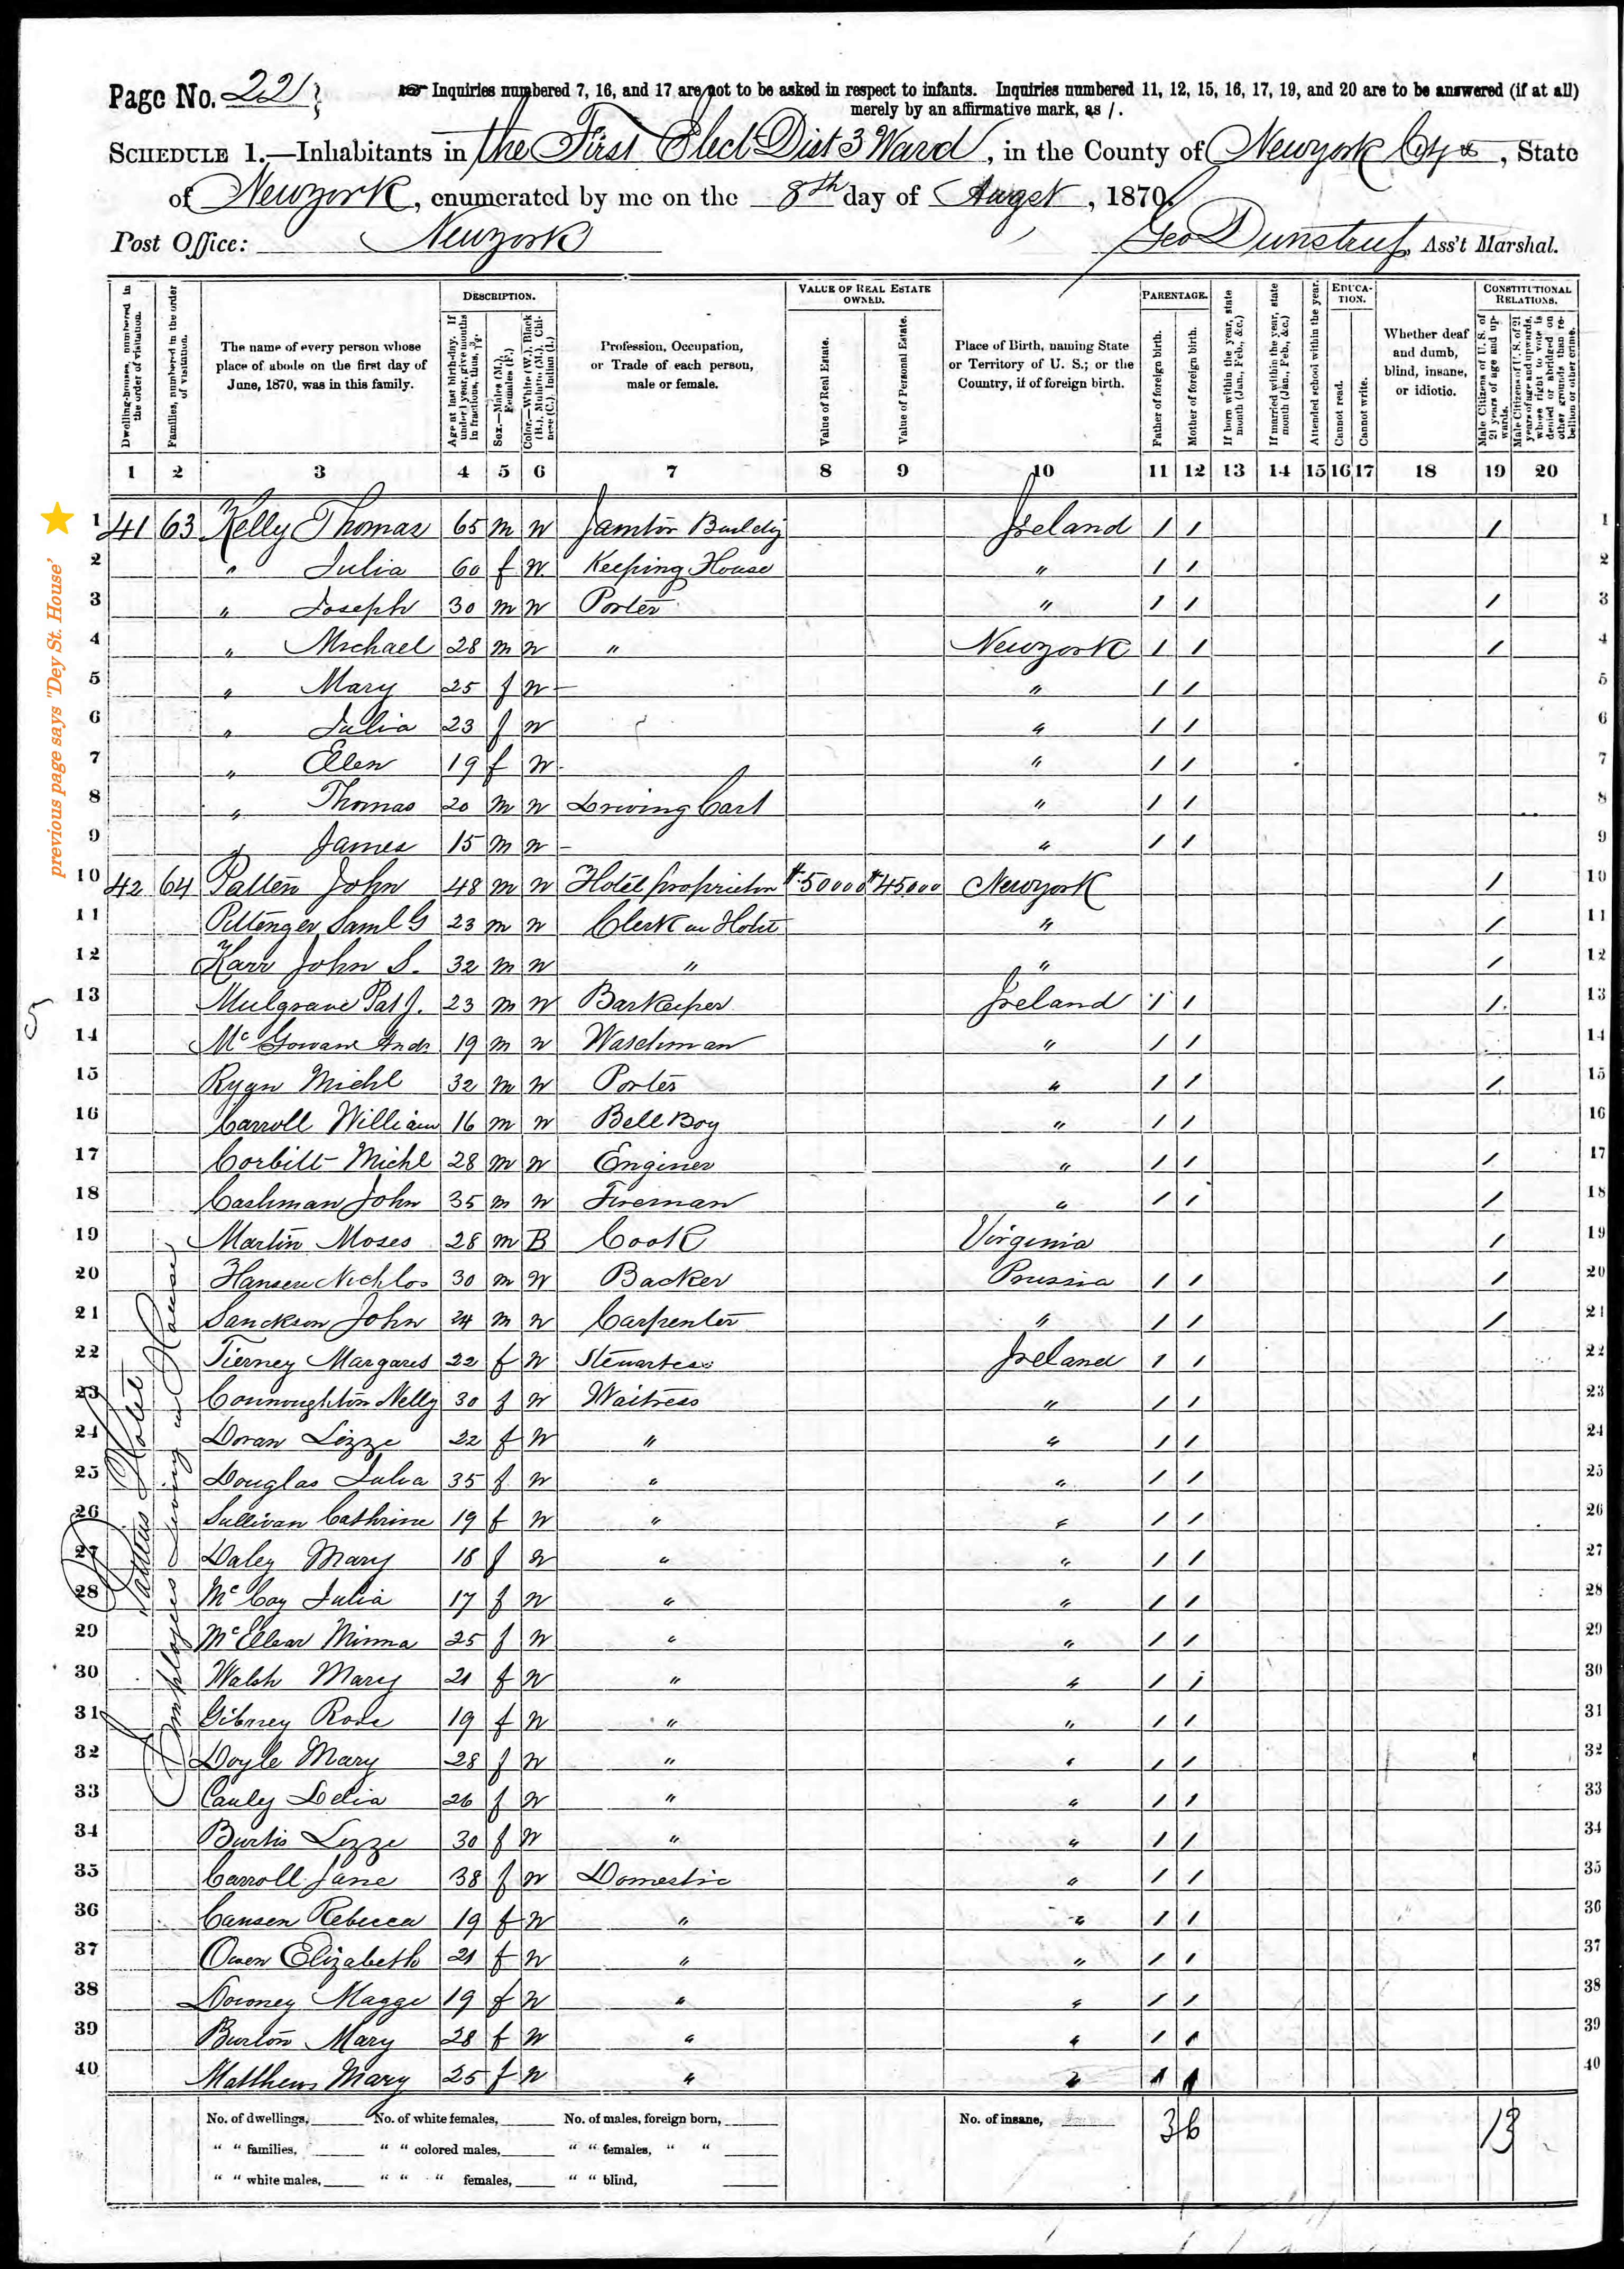 Page No. 22
Inquiries numbered 7, 16, and 17 are not to be asked in respect to infants. Inquiries numbered 11, 12, 15, 16, 17, 19, and 20 are to be answered (if at all)
merely by an affirmative mark, as /.
SCHEDULE 1.—Inhabitants in the First Elect Dist 3 Ward, in the County of Newyork City, State
of Newyork, enumerated by me on the 8th day of Augst, 1870.
Post Office: Newyork
Geo Dunstruf, Ass't Marshal.
Dwelling-houses, numbered in the order of visitation.
Families, numbered in the order of visitation.
The name of every person whose place of abode on the first day of June, 1870, was in this family.
DESCRIPTION.
Age at last birth-day. If under 1 year, give months in fractions, thus, 3/12.
Sex.—Males (M.), Females (F.)
Color.—White (W.), Black (B.), Mulatto (M.), Chinese (C.), Indian (I.)
Profession, Occupation, or Trade of each person, male or female.
VALUE OF REAL ESTATE OWNED.
Value of Real Estate.
Value of Personal Estate.
Place of Birth, naming State or Territory of U. S.; or the Country, if of foreign birth.
PARENTAGE.
Father of foreign birth.
Mother of foreign birth.
If born within the year, state month (Jan., Feb., &c.)
If married within the year, state month (Jan., Feb., &c.)
Attended school within the year.
EDUCATION.
Cannot read.
Cannot write.
Whether deaf and dumb, blind, insane, or idiotic.
CONSTITUTIONAL RELATIONS.
Male Citizens of U. S. of 21 years of age and upwards.
Male Citizens of U. S. of 21 years of age and upwards, whose right to vote is denied or abridged on other grounds than rebellion or other crime.
1 2 3 4 5 6 7 8 9 10 11 12 13 14 15 16 17 18 19 20
previous page says "Dey St. House'
1 41 63 Kelly Thomas 65 m W Janitor Buildig Ireland / / / 1
2 " Julia 60 f W Keeping House " / / 2
3 " Joseph 30 m W Porter " / / / 3
4 " Michael 28 m W " Newyork / / / 4
5 " Mary 25 f W — " / / 5
6 " Julia 23 f W " / / 6
7 " Ellen 19 f W " / / 7
8 " Thomas 20 m W Driving Cart " / / 8
9 " James 15 m W — " / / 9
10 42 64 Patten John 48 m W Hotel proprietor $50000 $45000 Newyork / 10
11 Pittenger Saml G 23 m W Clerk in Hotel " / 11
12 Karr John S. 32 m W " " / 12
13 Mulgrave Pat J. 23 m W Barkeeper Ireland / / / 13
14 McGowane Andr 19 m W Waschman " / / 14
15 Ryan Michl 32 m W Porter " / / / 15
16 Carroll William 16 m W Bell Boy " / / 16
17 Corbitt Michl 28 m W Enginer " / / / 17
18 Cashman John 35 m W Fireman " / / / 18
19 Martin Moses 28 m B Cook Virginia / 19
20 Hansen Nichlos 30 m W Backer Prussia / / / 20
21 Sanckson John 24 m W Carpenter " / / / 21
22 Tierney Margaret 22 f W Stewartess Ireland / / 22
23 Connoughton Nelly 30 f W Waitress " / / 23
24 Doran Lizze 22 f W " " / / 24
25 Douglas Julia 35 f W " " / / 25
26 Sullivan Cathrine 19 f W " " / / 26
27 Daley Mary 18 f W " " / / 27
28 McCoy Julia 17 f W " " / / 28
29 McEllear Minna 25 f W " " / / 29
30 Walsh Mary 21 f W " " / / 30
31 Gibney Rose 19 f W " " / / 31
32 Doyle Mary 28 f W " " / / 32
33 Cauly Delia 26 f W " " / / 33
34 Burtis Lizze 30 f W " " / / 34
35 Carroll Jane 38 f W Domestic " / / 35
36 Cansen Rebecca 19 f W " " / / 36
37 Owen Elizabeth 21 f W " " / / 37
38 Downey Magge 19 f W " " / / 38
39 Burton Mary 28 f W " " / / 39
40 Matthews Mary 25 f W " " / / 40
Pattens Hotel
Employees living in House
No. of dwellings, No. of white females, No. of males, foreign born, No. of insane, 36 13
" " families, " " colored males, " " females, " "
" " white males, " " " females, " " blind,